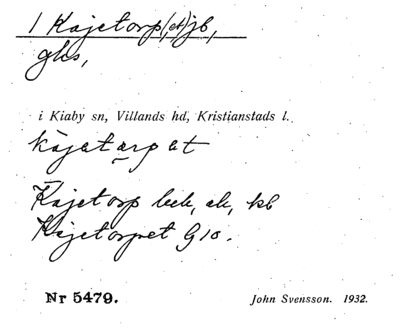 1 Kajetorp(et) jb,
ghs,
i Kiaby sn, Villands hd, Kristianstads l.
kajetarpat
Kajetorp beb, ek, kb
Kajetorpet G 10.
Nr 5479.
John Svensson. 1932.